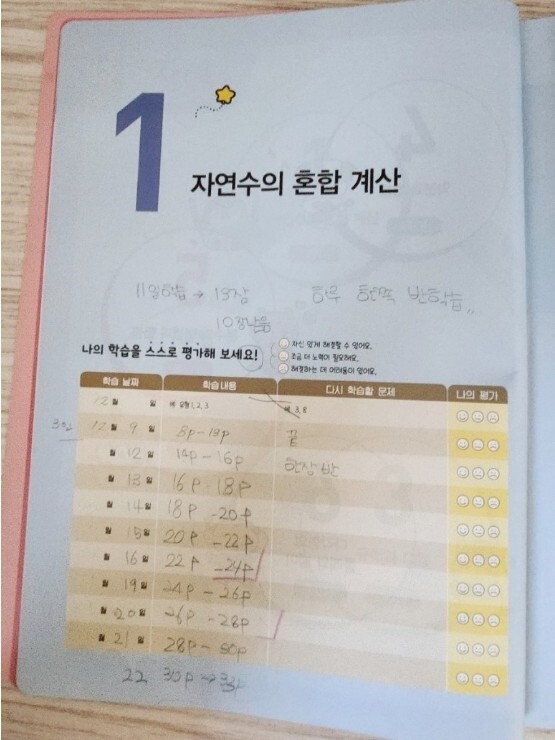 1
자연수의 혼합 계산
11일학습 → 13장 하루 한쪽 반학습
10장남음
나의 학습을 스스로 평가해 보세요!
자신 있게 해결할 수 있어요.
조금 더 노력이 필요해요.
해결하는 데 어려움이 있어요.
학습 날짜 학습 내용 다시 학습할 문제 나의 평가
12월 일 예 유형 1, 2, 3 예 3, 8
12월 9일 8p - 13p 끝
월 12일 14p - 16p 한장 반
월 13일 16p - 18p
월 14일 18p - 20p
월 15일 20p - 22p
월 16일 22p - 24p
월 19일 24p - 26p
월 20일 26p - 28p
월 21일 28p - 30p
22 30p →